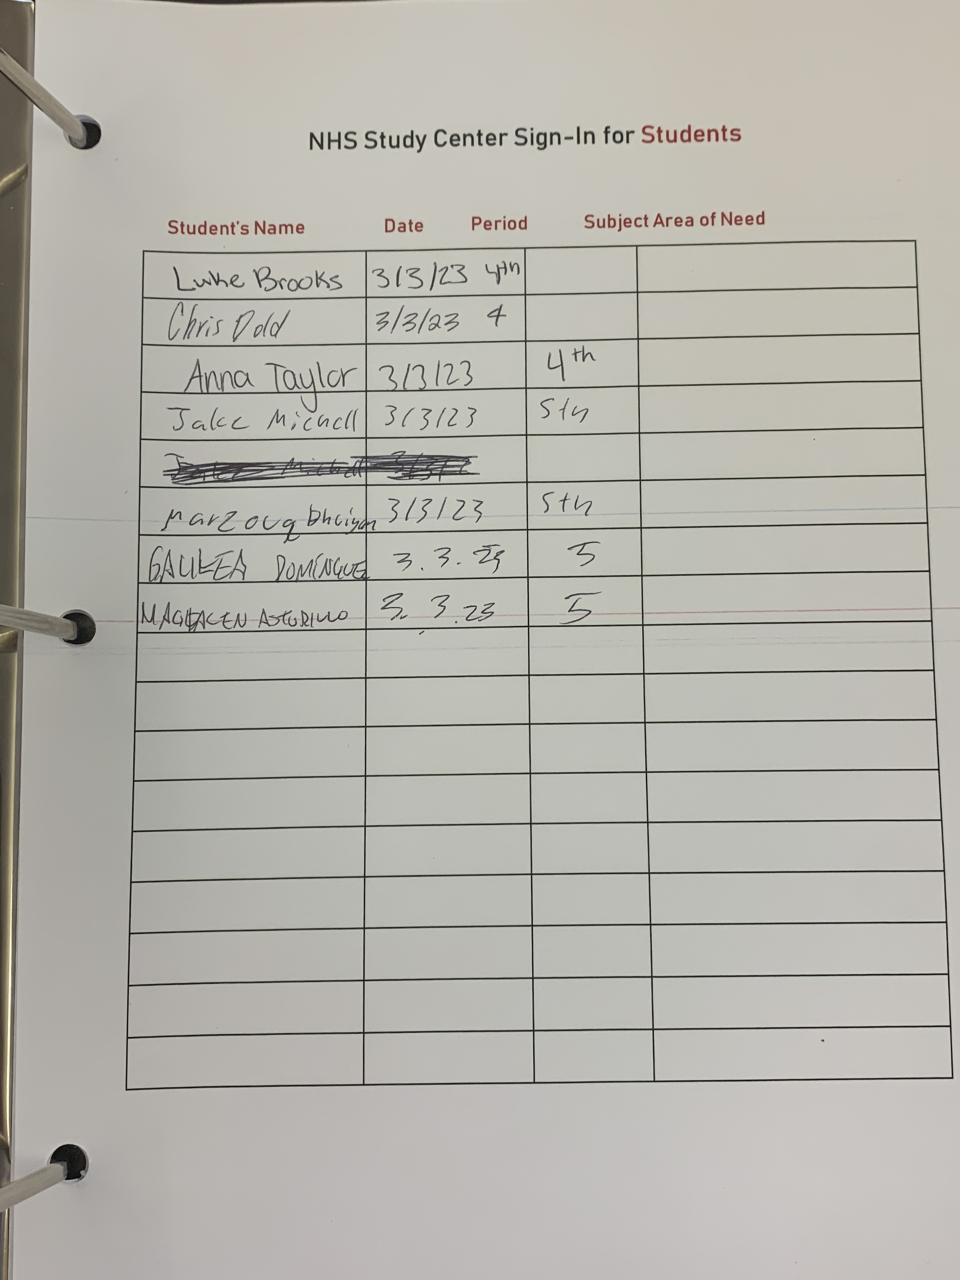 NHS Study Center Sign-In for Students
Student's Name Date Period Subject Area of Need
Luke Brooks 3/3/23 4th
Chris Dold 3/3/23 4
Anna Taylor 3/3/23 4th
Jake Michell 3/3/23 5th
Marzouq Bhuiyan 3/3/23 5th
GALILEA DOMÍNGUEZ 3.3.23 5
3.3.23 5